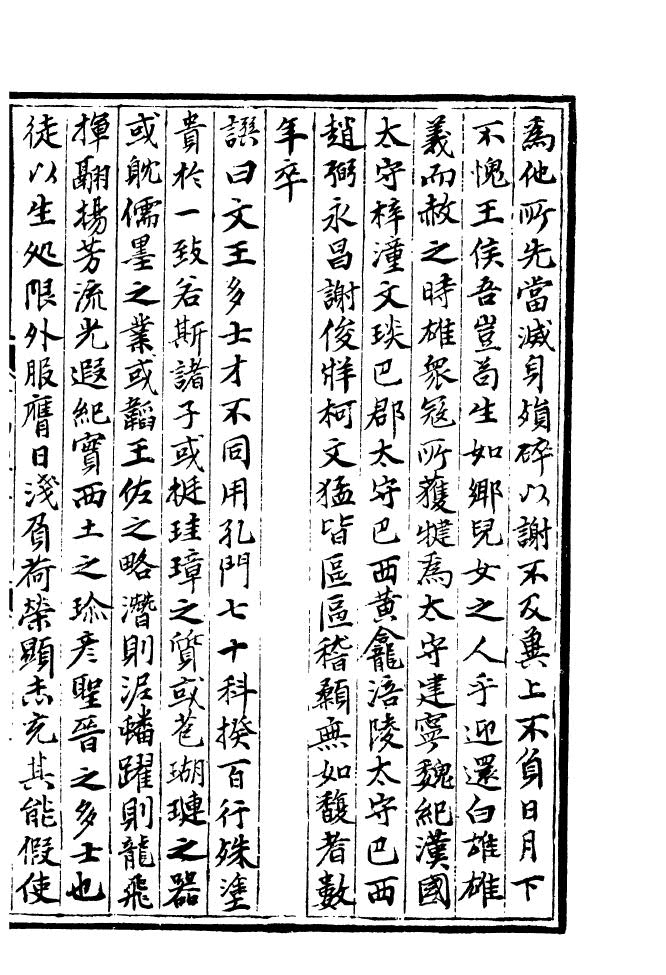 為他所先當滅身殞碎以謝不及冀上不負日月下
不愧王侯吾豈苟生如鄉兒女之人乎迎還白雄雄
義而赦之時雄衆冦所獲犍為太守建寧魏紀漢國
太守梓潼文琰巴郡太守巴西黃龕涪陵太守巴西
趙弼永昌謝俊牂柯文猛皆區區稽顙無如馥者數
年卒
譔曰文王多士才不同用孔門七十科揆百行殊塗
貴於一致若斯諸子或挺珪璋之質或苞瑚璉之器
或躭儒墨之業或韜王佐之略潛則泥蟠躍則龍飛
揮翮揚芳流光遐紀寳西土之珍彥聖晉之多士也
徒以生処限外服膺日淺負荷榮顯未充其能假使